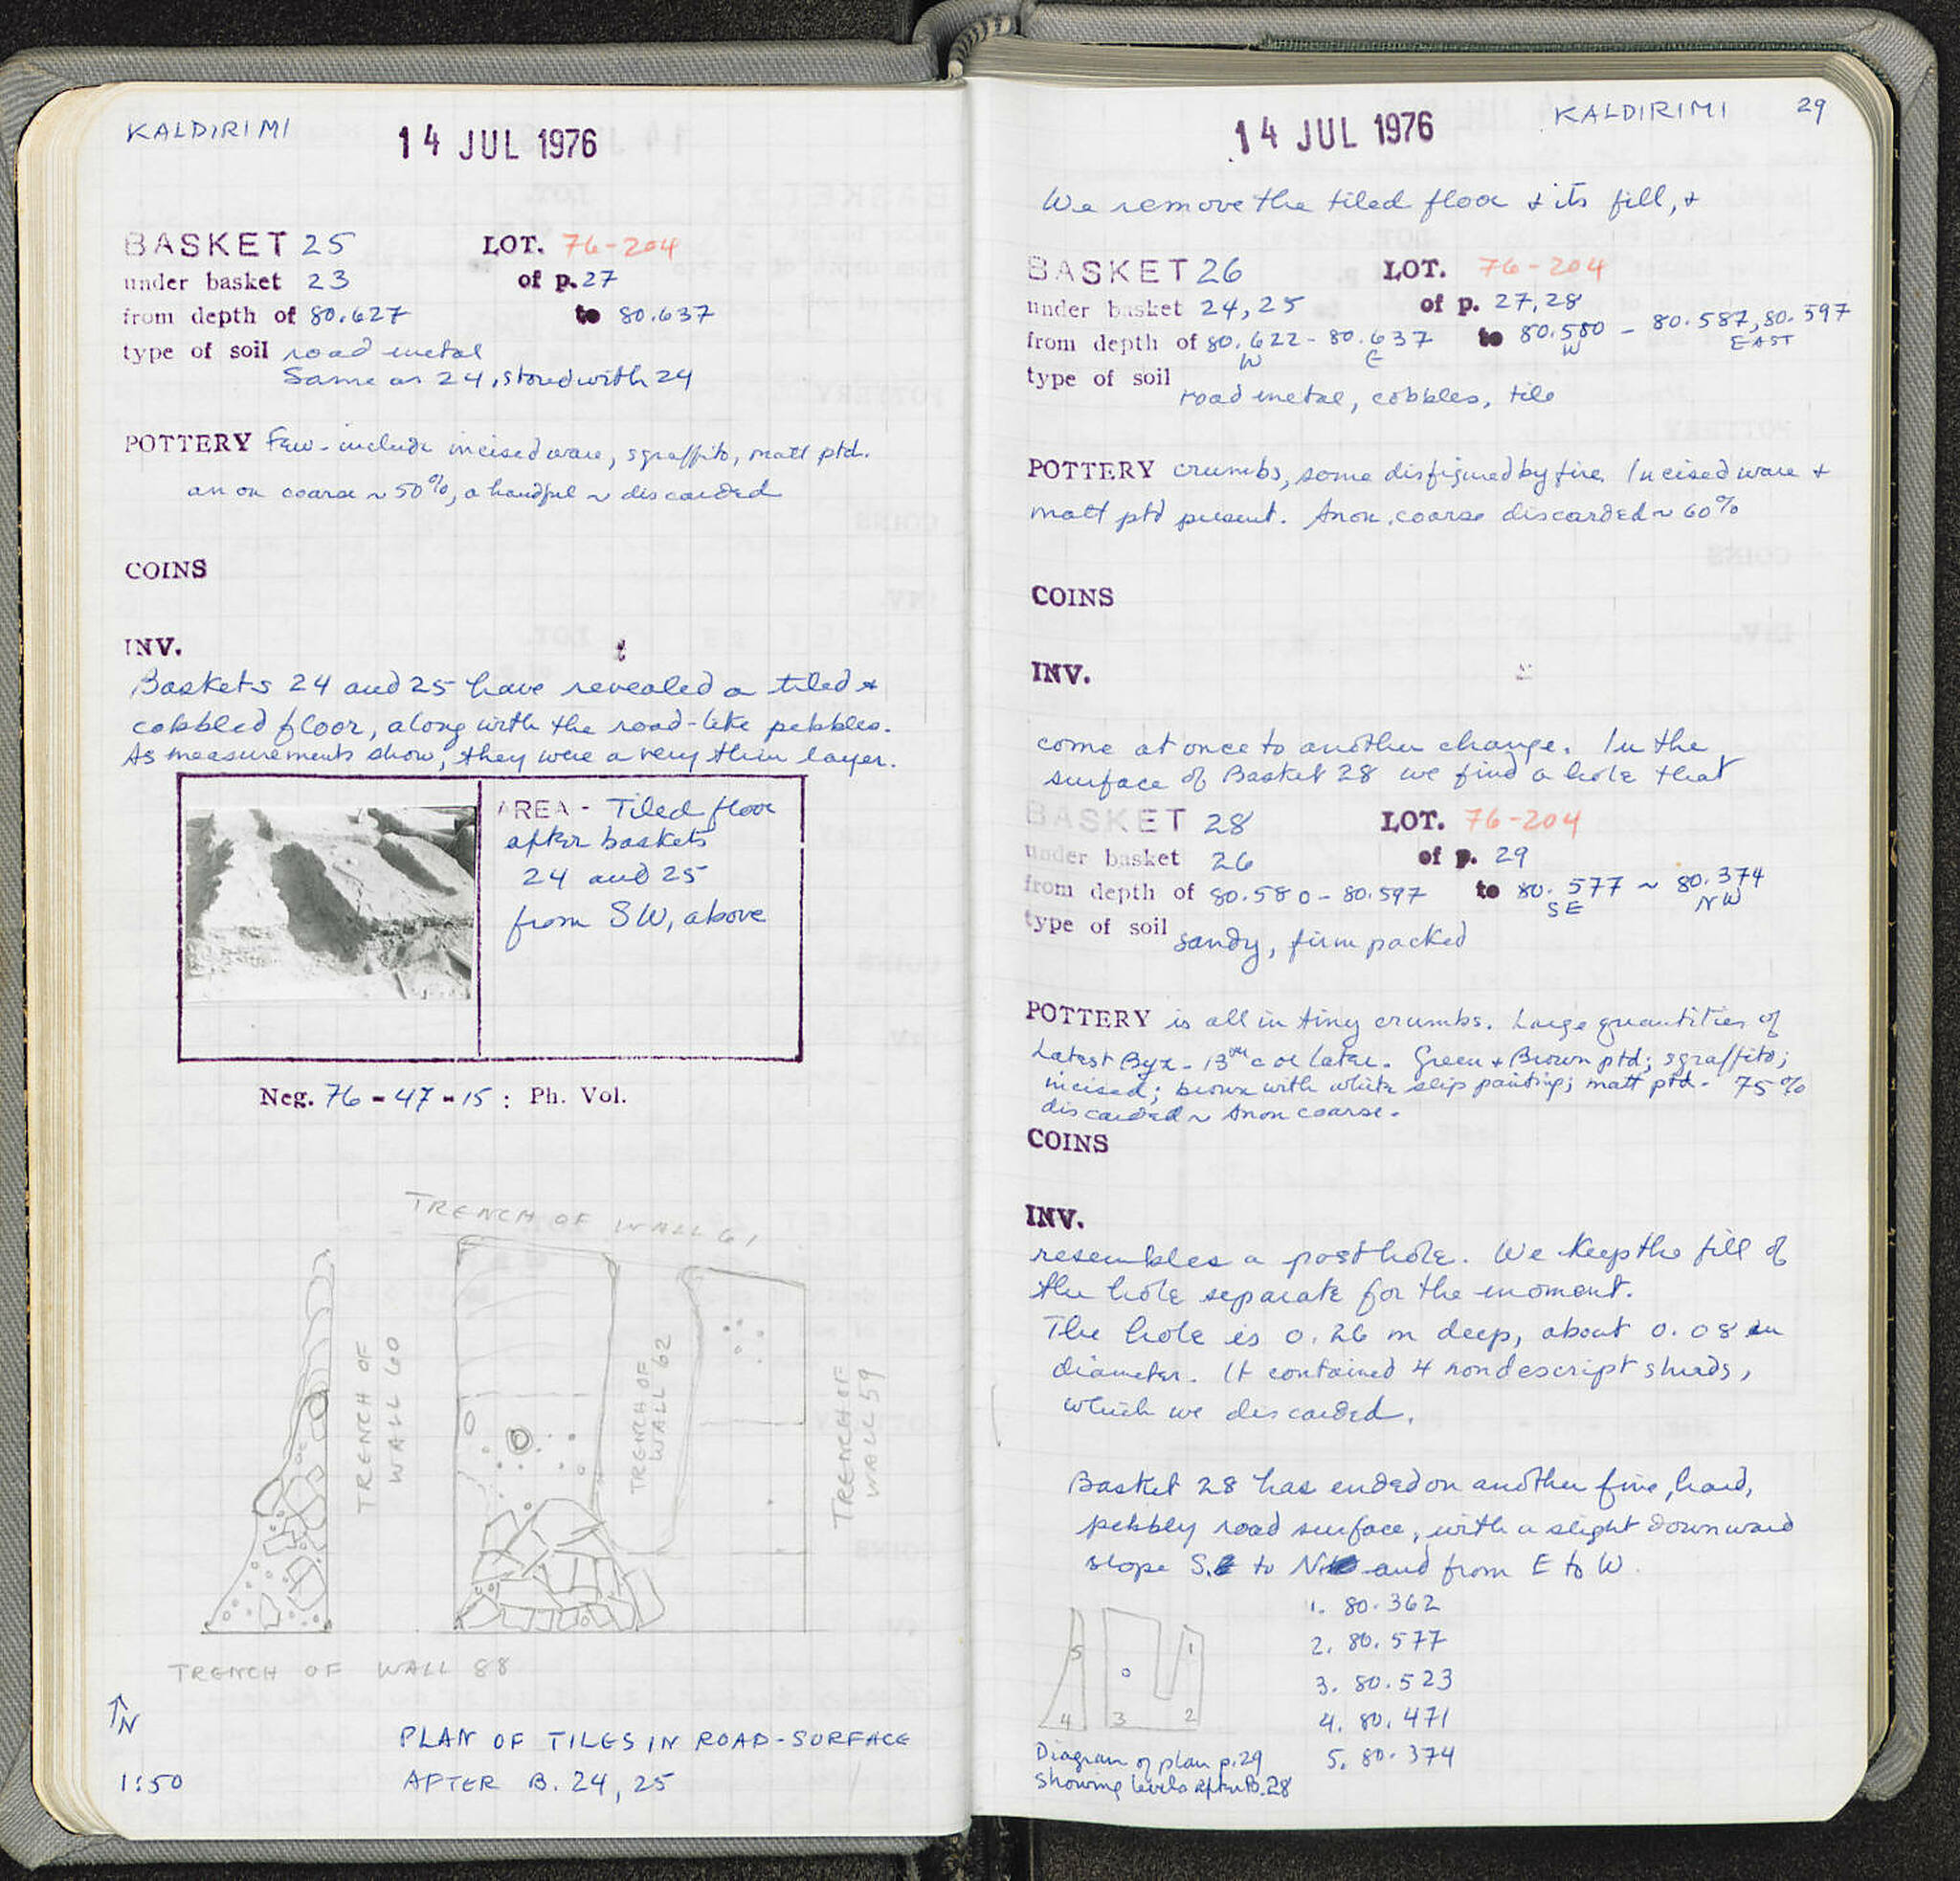 KALDIRIMI
14 JUL 1976
BASKET 25 LOT. 76-204
under basket 23 of p. 27
from depth of 80.627 to 80.637
type of soil road metal
Same as 24, stored with 24
POTTERY Few - include incised ware, sgraffito, matt ptd.
anon coarse ~ 50%, a handful ~ discarded
COINS
INV.
Baskets 24 and 25 have revealed a tiled +
cobbled floor, along with the road-like pebbles.
As measurements show, they were a very thin layer.
AREA - Tiled floor
after baskets
24 and 25
from SW, above
Neg. 76-47-15 : Ph. Vol.
TRENCH OF WALL 61
TRENCH OF
WALL 60
TRENCH OF
WALL 62
TRENCH OF
WALL 59
TRENCH OF WALL 88
N
1:50
PLAN OF TILES IN ROAD-SURFACE
AFTER B. 24, 25
14 JUL 1976 KALDIRIMI 29
We remove the tiled floor + its fill, +
BASKET 26 LOT. 76-204
under basket 24, 25 of p. 27, 28
from depth of 80.622 - 80.637 to 80.580 - 80.587, 80.597
W E W EAST
type of soil
road metal, cobbles, tile
POTTERY crumbs, some disfigured by fire. Incised ware +
matt ptd present. Anon. coarse discarded ~ 60%
COINS
INV.
come at once to another change. In the
surface of Basket 28 we find a hole that
BASKET 28 LOT. 76-204
under basket 26 of p. 29
from depth of 80.580 - 80.597 to 80.577 ~ 80.374
SE NW
type of soil
sandy, firm packed
POTTERY is all in tiny crumbs. Large quantities of
Latest Byz - 13th c or later. Green + Brown ptd; sgraffito;
incised; brown with white slip painting; matt ptd. 75%
discarded ~ Anon coarse.
COINS
INV.
resembles a posthole. We keep the fill of
the hole separate for the moment.
The hole is 0.26 m deep, about 0.08 in
diameter. It contained 4 nondescript sherds,
which we discarded.
Basket 28 has ended on another fine, hard,
pebbly road surface, with a slight downward
slope S. to N and from E to W.
1. 80.362
2. 80.577
3. 80.523
4. 80.471
5. 80.374
5 1
4 3 2
Diagram of plan p. 29
showing levels after B. 28